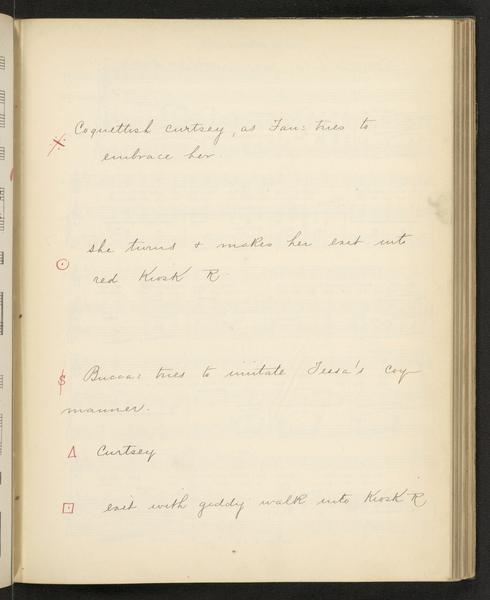 Coquettish curtsey, as Fan: tries to
embrace her.
she turns & makes her exit into
red Kiosk R
Bucca: tries to imitate Tessa's coy
manner.
Curtsey
exit with giddy walk into Kiosk R